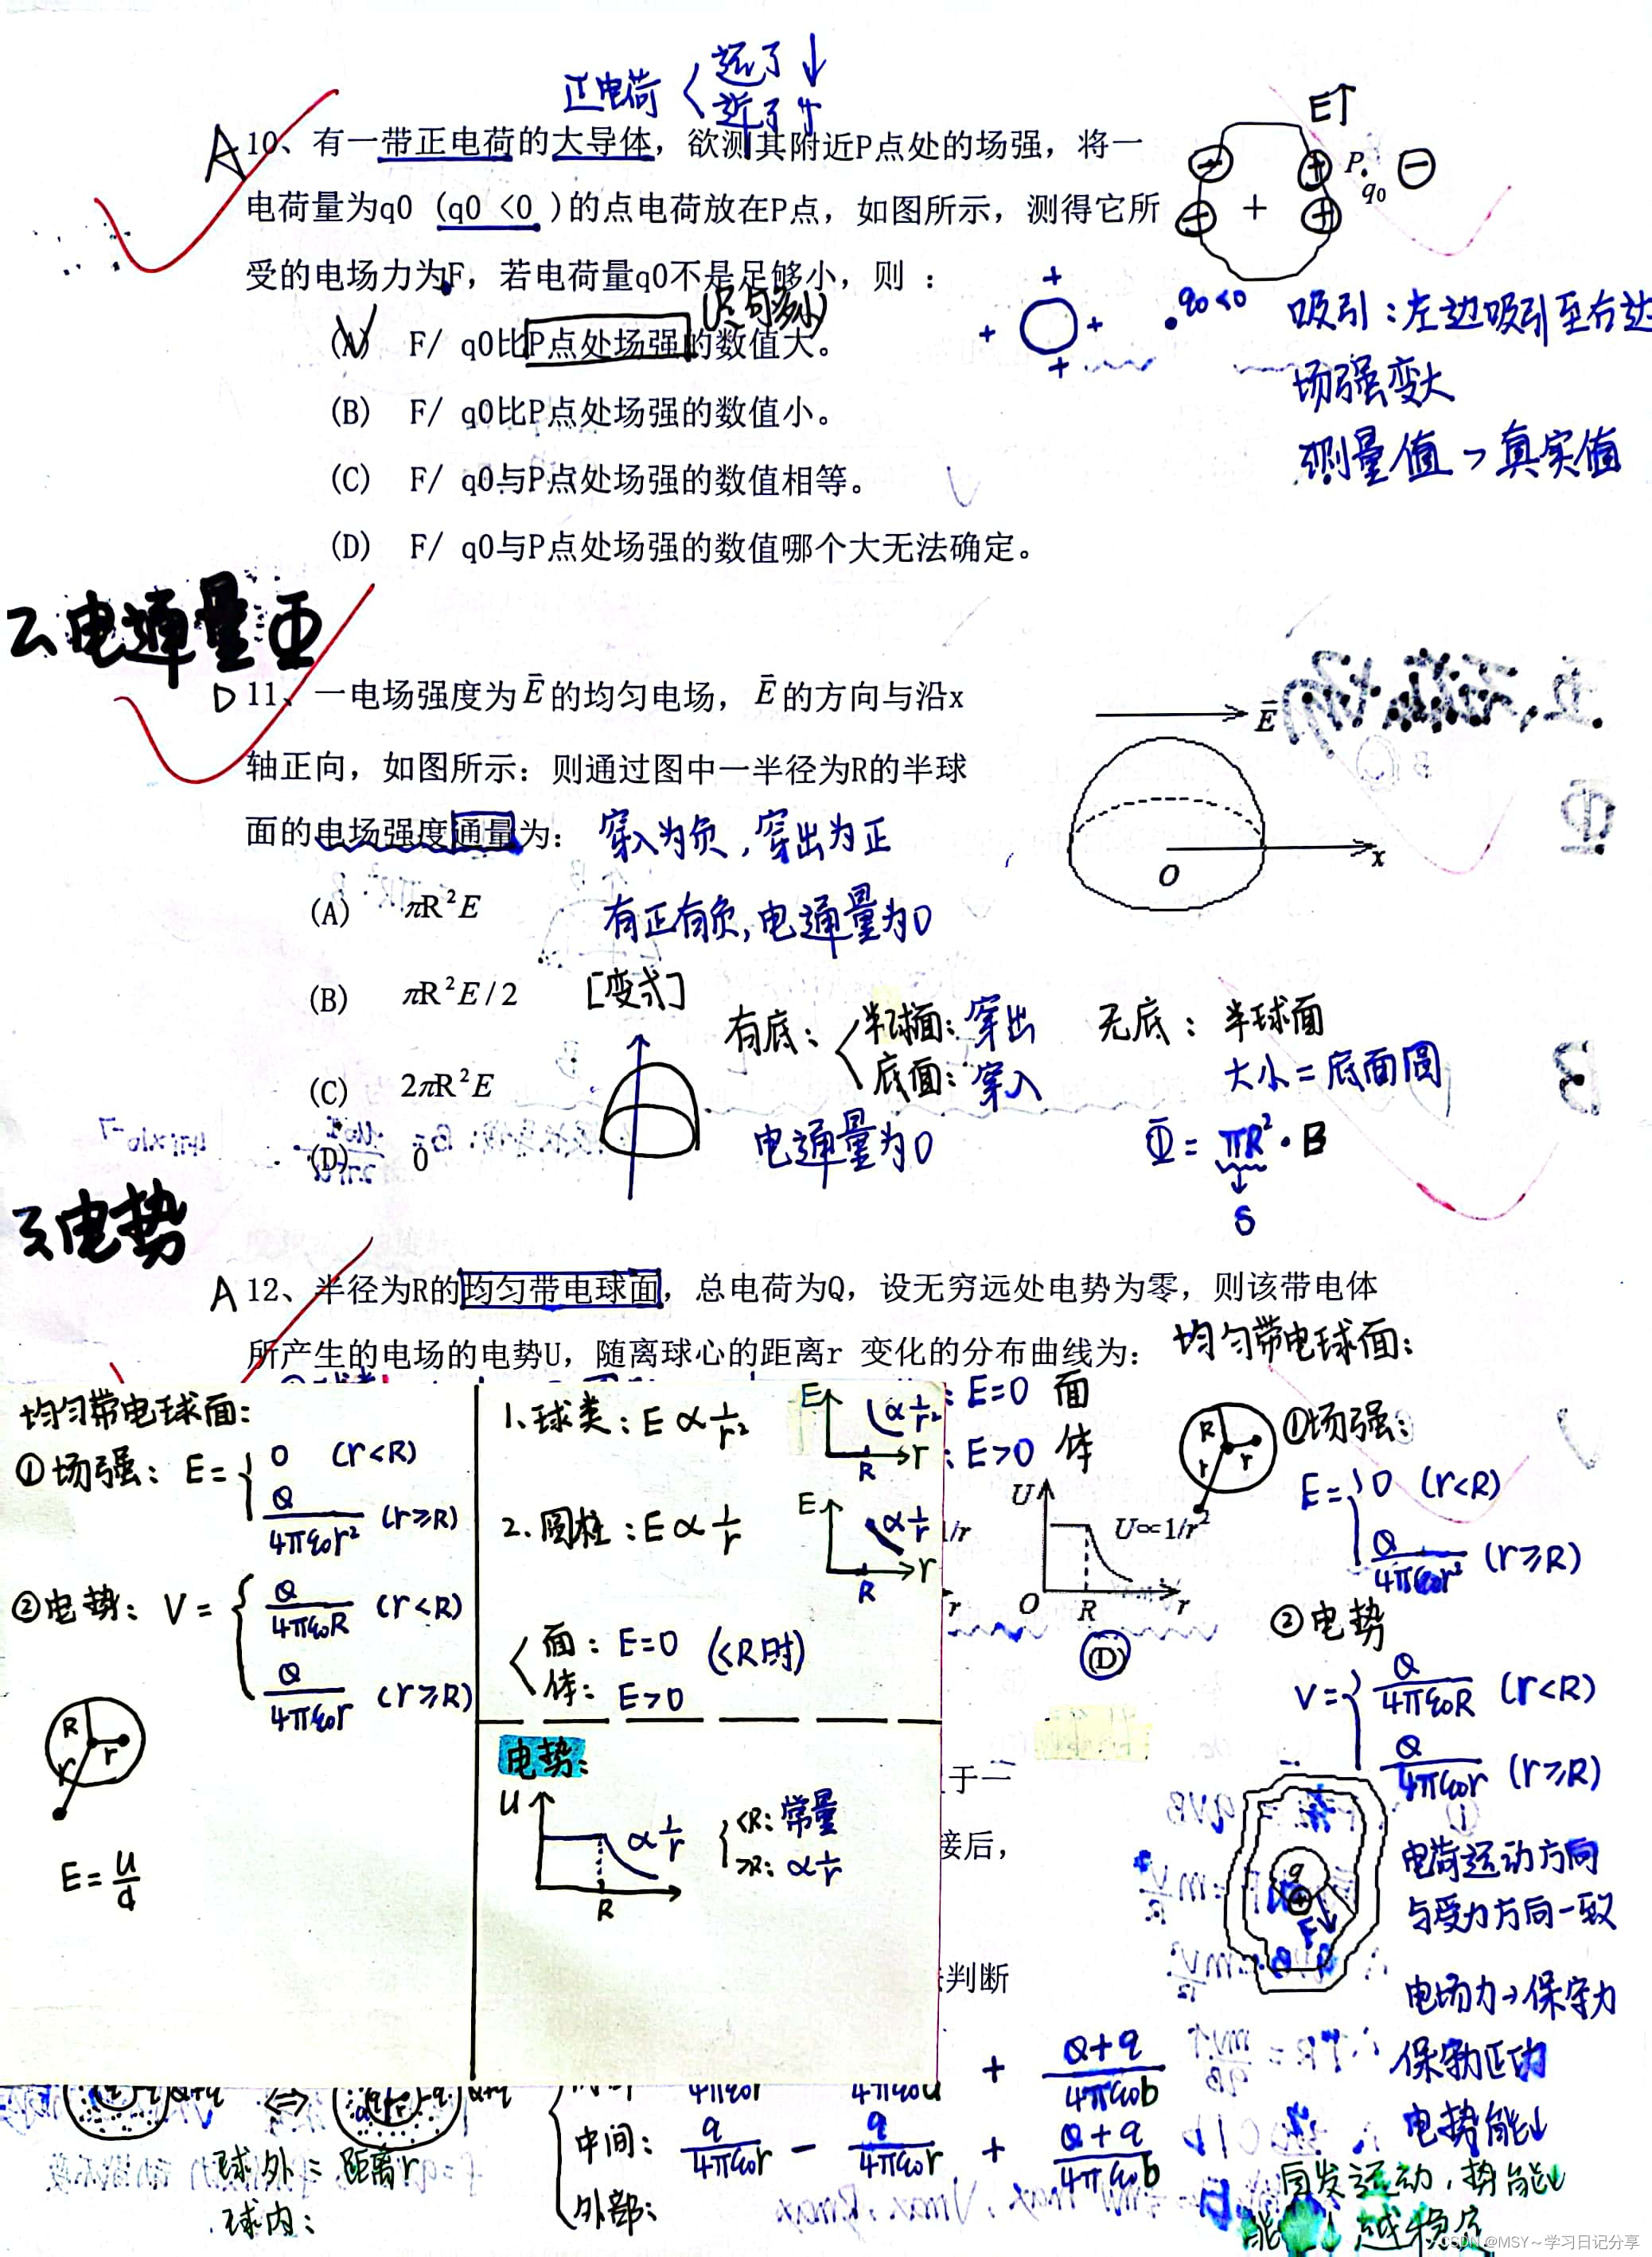 正电荷
远了↓
近了↑
E↑
A 10、有一带正电荷的大导体，欲测其附近P点处的场强，将一
P
q0
电荷量为q0 (q0 <0 )的点电荷放在P点，如图所示，测得它所
受的电场力为F，若电荷量q0不是足够小，则 ：
(足够小)
(A) F/ q0比P点处场强的数值大。
q0<0
吸引：左边吸引至右边
场强变大
(B) F/ q0比P点处场强的数值小。
测量值 > 真实值
(C) F/ q0与P点处场强的数值相等。
(D) F/ q0与P点处场强的数值哪个大无法确定。
2 电通量Φ
D 11、一电场强度为E的均匀电场，E的方向与沿x
E
轴正向，如图所示：则通过图中一半径为R的半球
面的电场强度通量为：
穿入为负，穿出为正
O
x
(A) πR²E
有正有负，电通量为0
(B) πR²E/2
[变式]
有底：
半球面：穿出
底面：穿入
无底：半球面
大小=底面圆
(C) 2πR²E
电通量为0
Φ=πR²·B
S
(D) 0
3 电势
A 12、半径为R的均匀带电球面，总电荷为Q，设无穷远处电势为零，则该带电体
所产生的电场的电势U，随离球心的距离r 变化的分布曲线为：
均匀带电球面：
均匀带电球面：
①场强：E= 0 (r<R)
Q/4πε0r² (r≥R)
②电势：V= Q/4πε0R (r<R)
Q/4πε0r (r≥R)
R
r
r
E=U/d
1.球类：E∝1/r²
E
∝1/r²
R
r
2.圆柱：E∝1/r
E
∝1/r
R
r
面：E=0 (<R时)
体：E>0
电势：
U
∝1/r
R
<R：常量
>R：∝1/r
：E=0 面
：E>0 体
1/r
r
U
U∝1/r²
O R r
(D)
R
r
r
①场强：
E= 0 (r<R)
Q/4πε0r² (r≥R)
②电势
V= Q/4πε0R (r<R)
Q/4πε0r (r≥R)
于一
接后，
判断
q
F
电荷运动方向
与受力方向一致
电场力→保守力
电势能↓
+ (Q+q)/4πε0b
中间：q/4πε0r − q/4πε0r + (Q+q)/4πε0b
外部：
球外=距离r
球内：
CSDN @MSY～学习日记分享